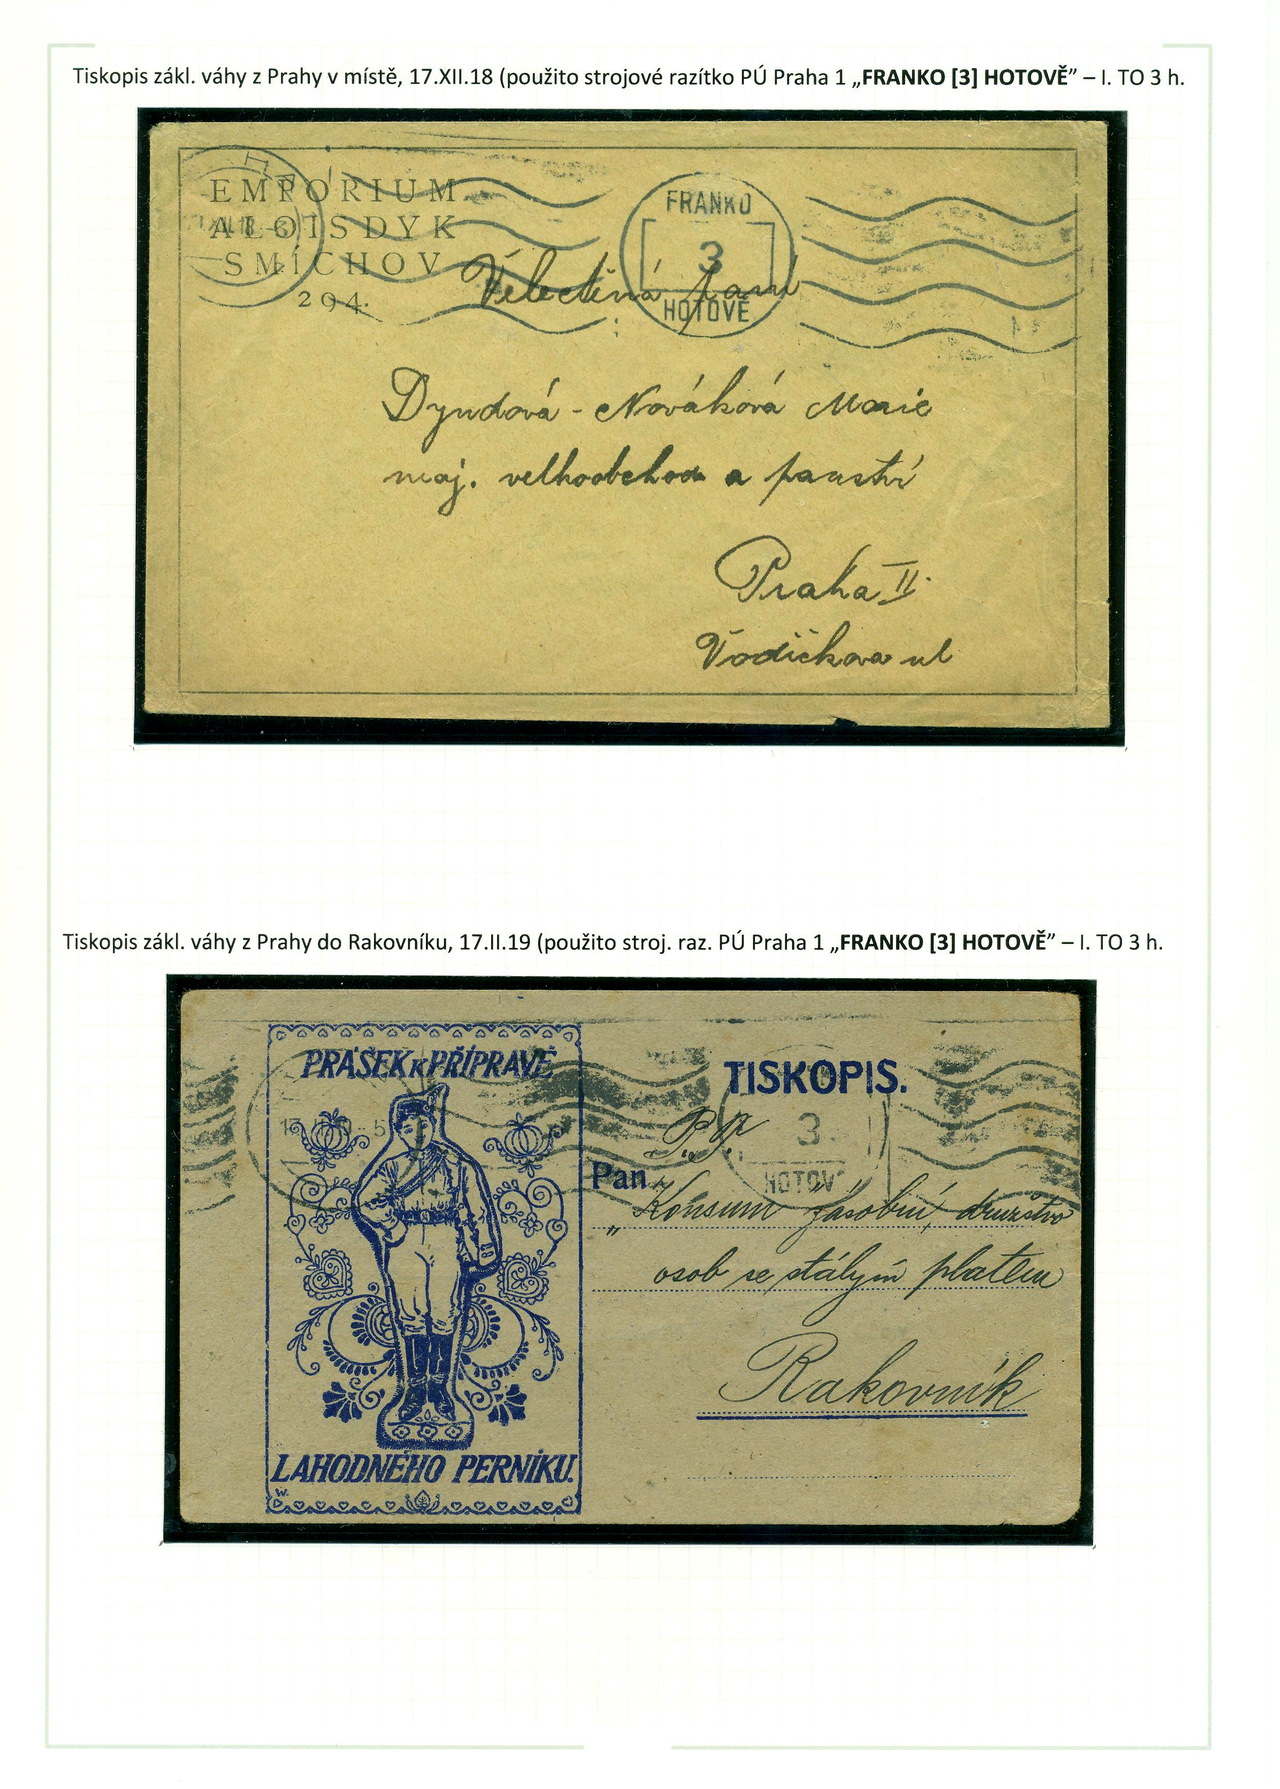 Tiskopis zákl. váhy z Prahy v místě, 17.XII.18 (použito strojové razítko PÚ Praha 1 „FRANKO [3] HOTOVĚ” – I. TO 3 h.
EMPORIUM
ALOIS DYK
SMÍCHOV
294.
FRANKO
3
HOTOVĚ
Velectěná paní
Dyndová - Nováková Marie
maj. velkoobchod a panství
Praha II.
Vodičkova ul
Tiskopis zákl. váhy z Prahy do Rakovníku, 17.II.19 (použito stroj. raz. PÚ Praha 1 „FRANKO [3] HOTOVĚ” – I. TO 3 h.
PRÁŠEK K PŘÍPRAVĚ
LAHODNÉHO PERNÍKU.
W.
TISKOPIS.
3
HOTOV
P.p.
Pan
„Konsum zásobní, družstvo
osob se stálým platem
Rakovník